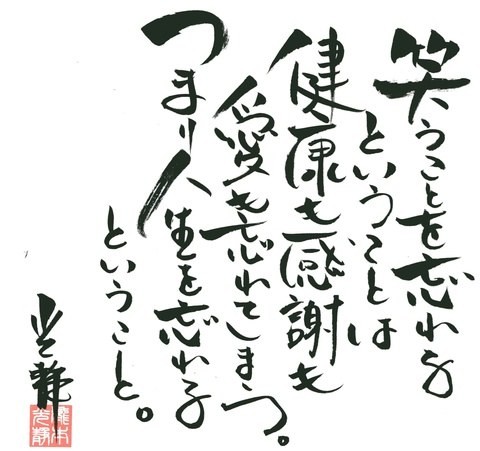 笑うことを忘れる
ということは
健康も感謝も
愛も忘れてしまう。
つまり人生を忘れる
ということ。
光龍